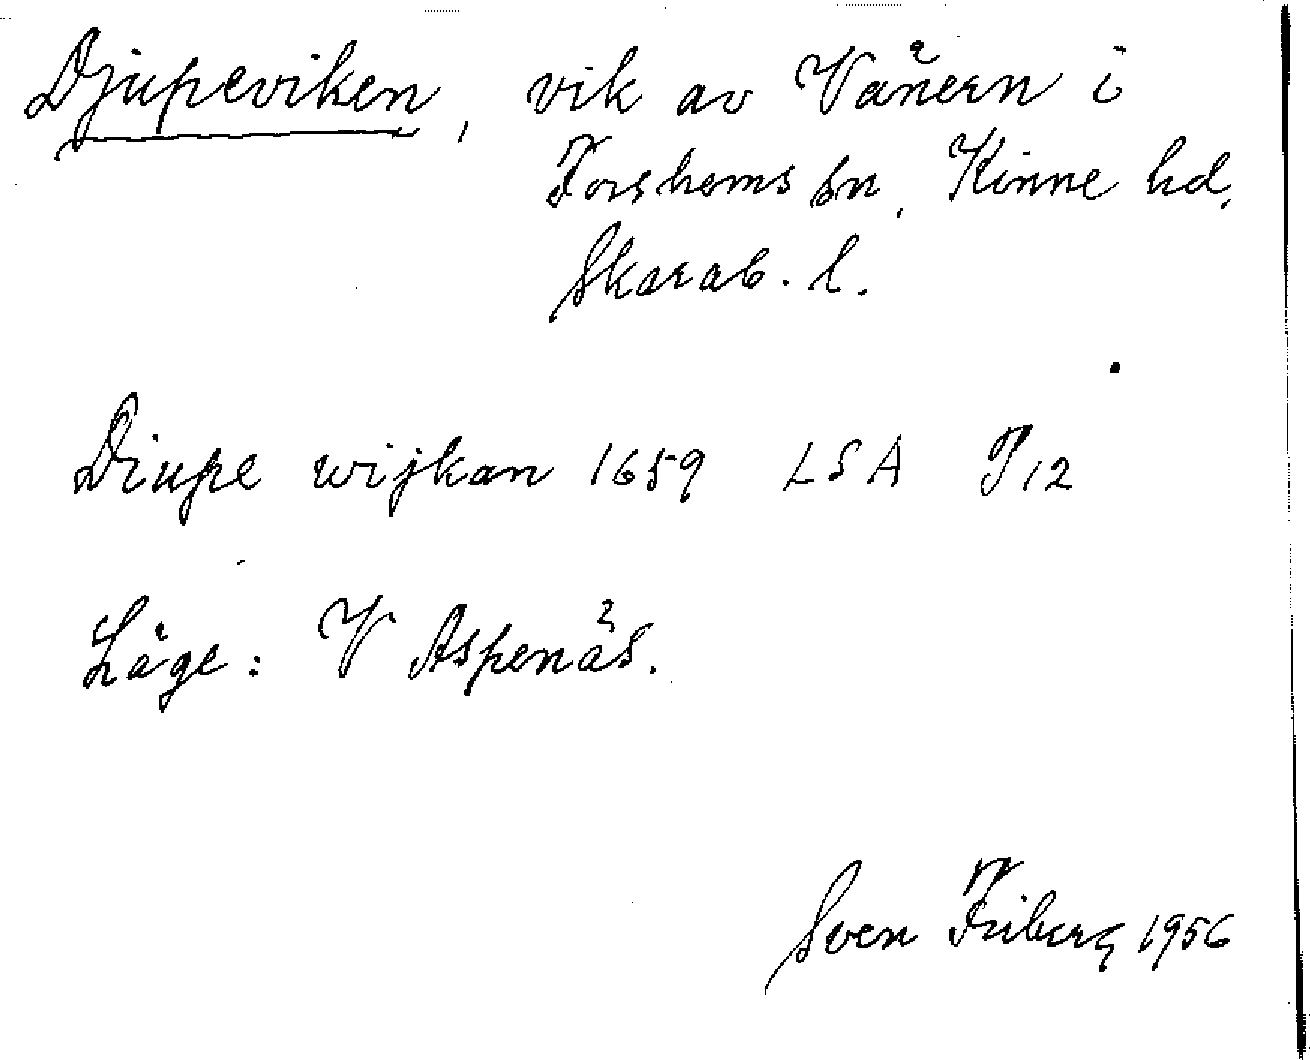 Djupeviken, vik av Vänern i
Forshems sn, Kinne hd,
Skarab. l.
Diupe wijkan 1659 LSA P12
Läge: V Aspenäs.
Sven Friberg 1956